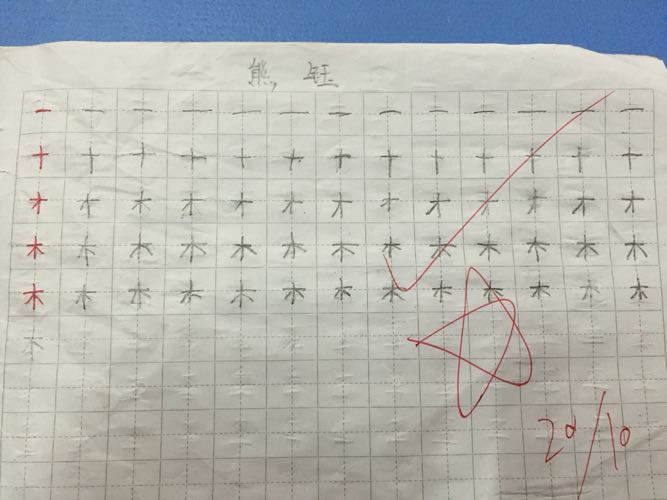 熊钰
一一一一一一一一一一一一一
十十十十十十十十十十十十十
才才才才才才才才才才才才才
木木木木木木木木木木木木木
木木木木木木木木木木木木木
木
20/10